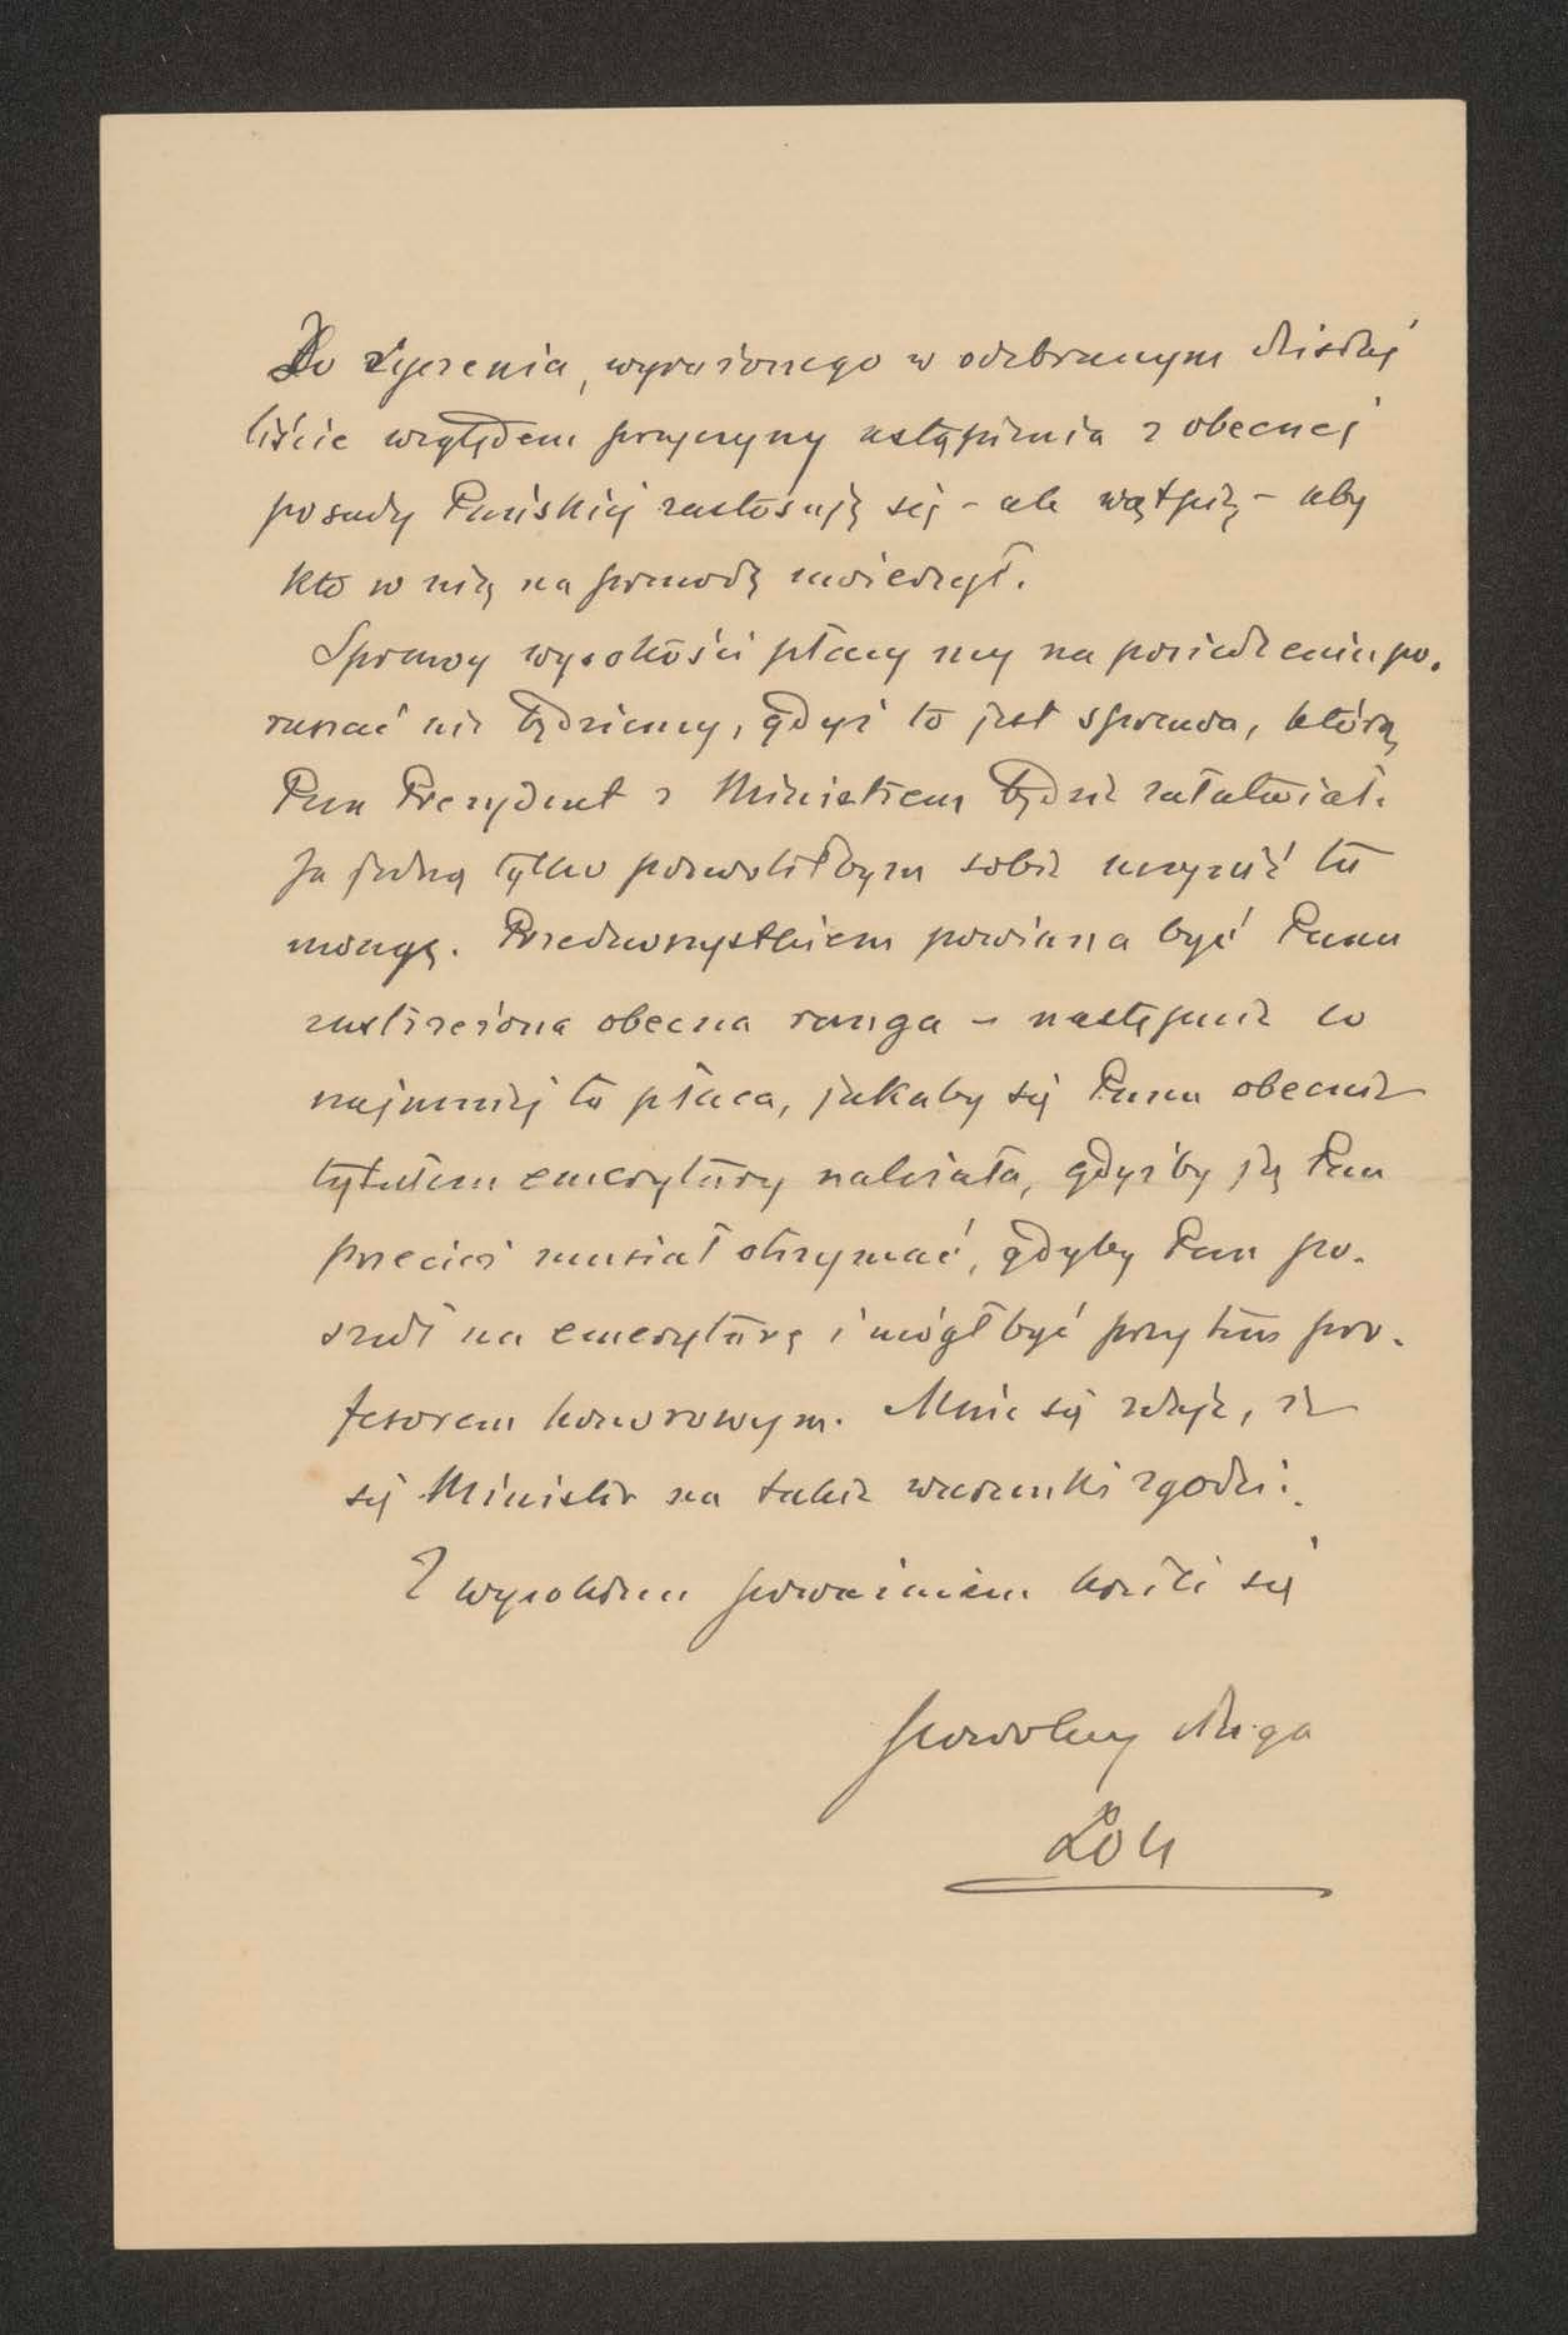 Do życzenia, wyrażonego w odebranym dzisiaj
liście względem przyczyny ustąpienia z obecnej
posady Pańskiej zastosuję się – ale wątpię – aby
kto w nią na prawdę uwierzył.
Sprawy wysokości płacy my na posiedzeniu po-
ruszać nie będziemy, gdyż to jest sprawa, którą
Pan Prezydent z Ministrem będzie załatwiał.
Ja jedną tylko pozwoliłbym sobie uczynić tu
uwagę. Przedewszystkiem powinna być Panu
zastrzeżona obecna ranga – następnie co
najmniej ta płaca, jakaby się Panu obecnie
tytułem emerytury należała, gdyżby ją Pan
przecież musiał otrzymać, gdyby Pan po-
szedł na emeryturę i mógł być przy tem pro-
fesorem honorowym. Mnie się zdaje, że
się Minister na takie warunki zgodzi.
Z wysokiem poważaniem kreśli się
powolny sługa
Zoll